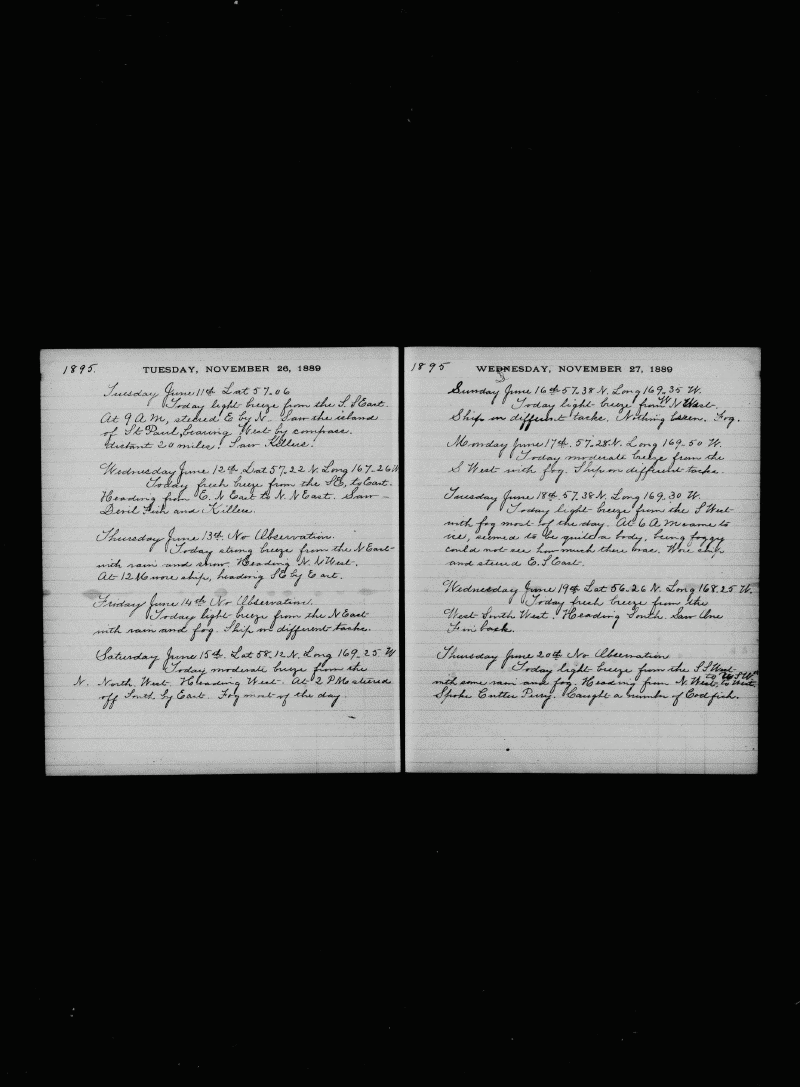 1895.
TUESDAY, NOVEMBER 26, 1889
Tuesday June 11th Lat 57-06
Today light breeze from the S. SEast.
At 9 A.M, steered E by N. Saw the island
of St Paul, bearing West by compass.
distant 20 miles. Saw Killers.
Wednesday June 12th Lat 57-22 N. Long 167-26 W
Today fresh breeze from the SE, by East.
Heading from E. N East to N. N East. Saw
Devil Fish and Killers.
Thursday June 13th No Observation.
Today strong breeze from the N East
with rain and snow. Heading N. N West.
At 12 M wore ship, heading SE by East.
Friday June 14th No Observation.
Today light breeze from the N East
with rain and fog. Ship on different tacks.
Saturday June 15th. Lat 58-12 N. Long 169-25. W
Today moderate breeze from the
N. North West. Heading West. At 2 PM steered
off South by East. Fog most of the day.
1895
WEDNESDAY, NOVEMBER 27, 1889
Sunday June 16th 57-38 N. Long 169-35 W.
Today light breeze from W N West
Ship on different tacks. Nothing seen. Fog.
Monday June 17th. 57-28 N. Long 169-50 W.
Today moderate breeze from the
S West with fog. Ship on different tacks.
Tuesday June 18th 57.38 N. Long 169.30 W.
Today light breeze from the S West
with fog most of the day. At 6 A M came to
ice, seemed to be quite a body, being foggy
could not see how much there was. Wore ship
and steered E. S East.
Wednesday June 19th Lat 56-26 N. Long 168.25 W.
Today fresh breeze from the
West South West. Heading South. Saw One
Finback.
Thursday June 20th No Observation
Today light breeze from the S S West
to W S W
with some rain and fog. Heading from N. West, to West.
Spoke Cutter Perry. Caught a number of Codfish.